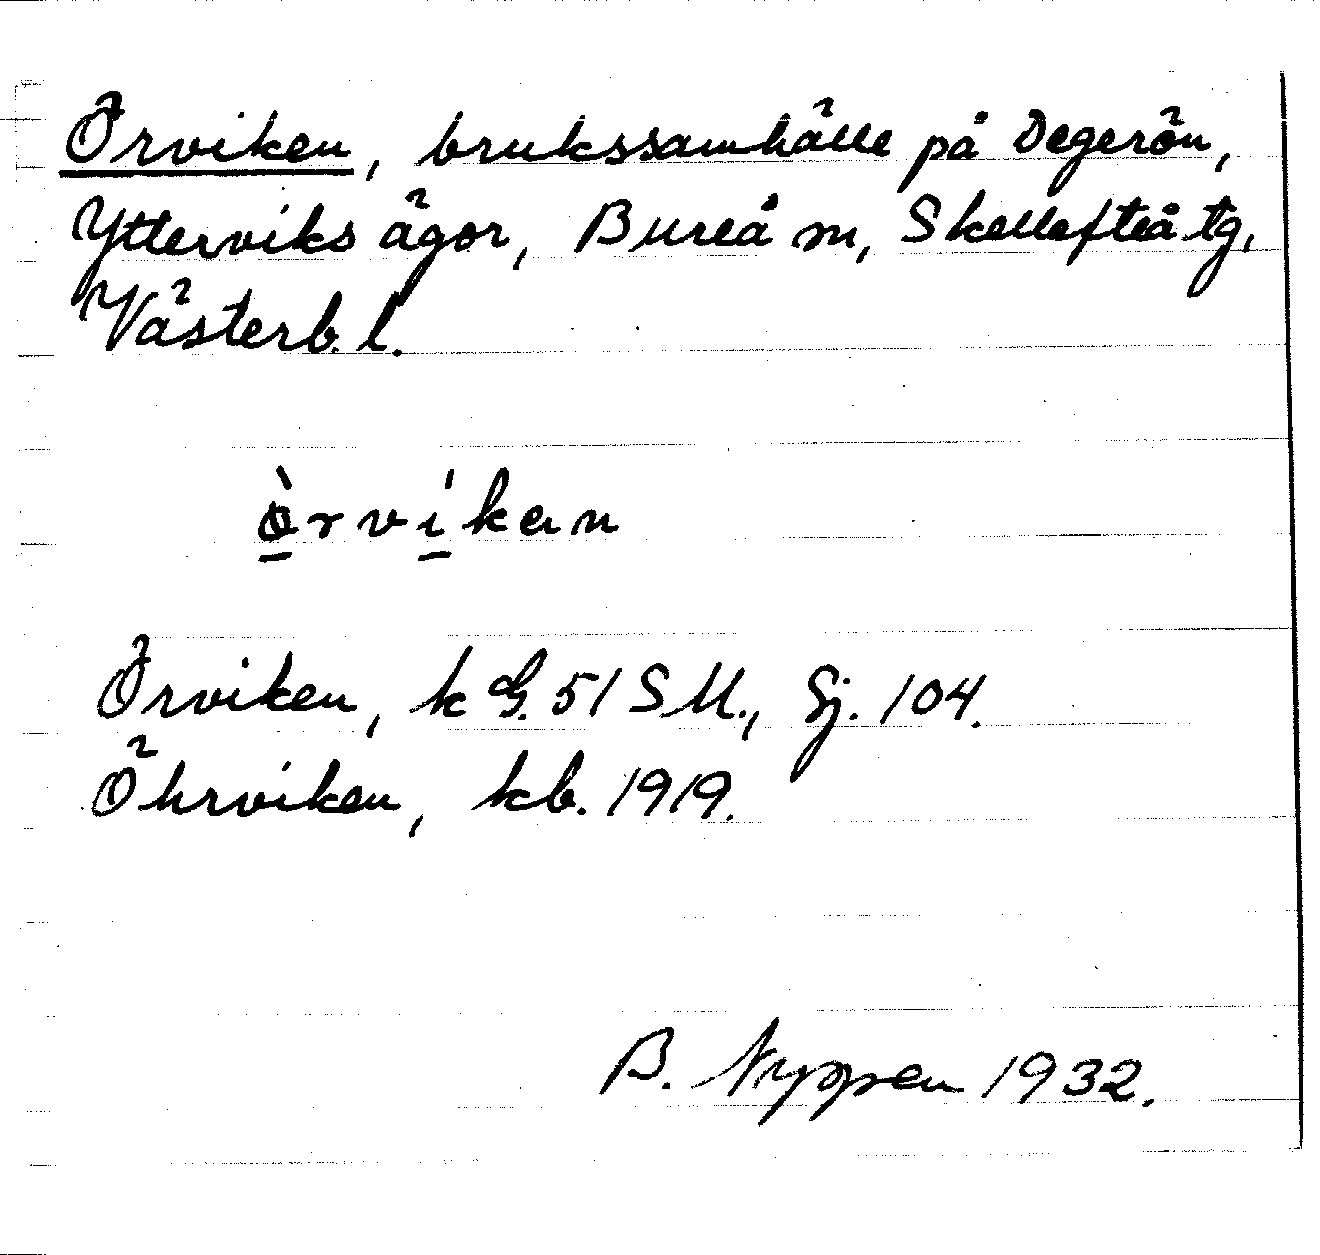 Örviken, brukssamhälle på Degerön,
Ytterviks ägor, Bureå sn, Skellefteå tg,
Västerb. l.
ò̱rví̱kan
Örviken, k G. 51 SU., Sj. 104.
Öhrviken, kb. 1919.
B. Nyppen 1932.